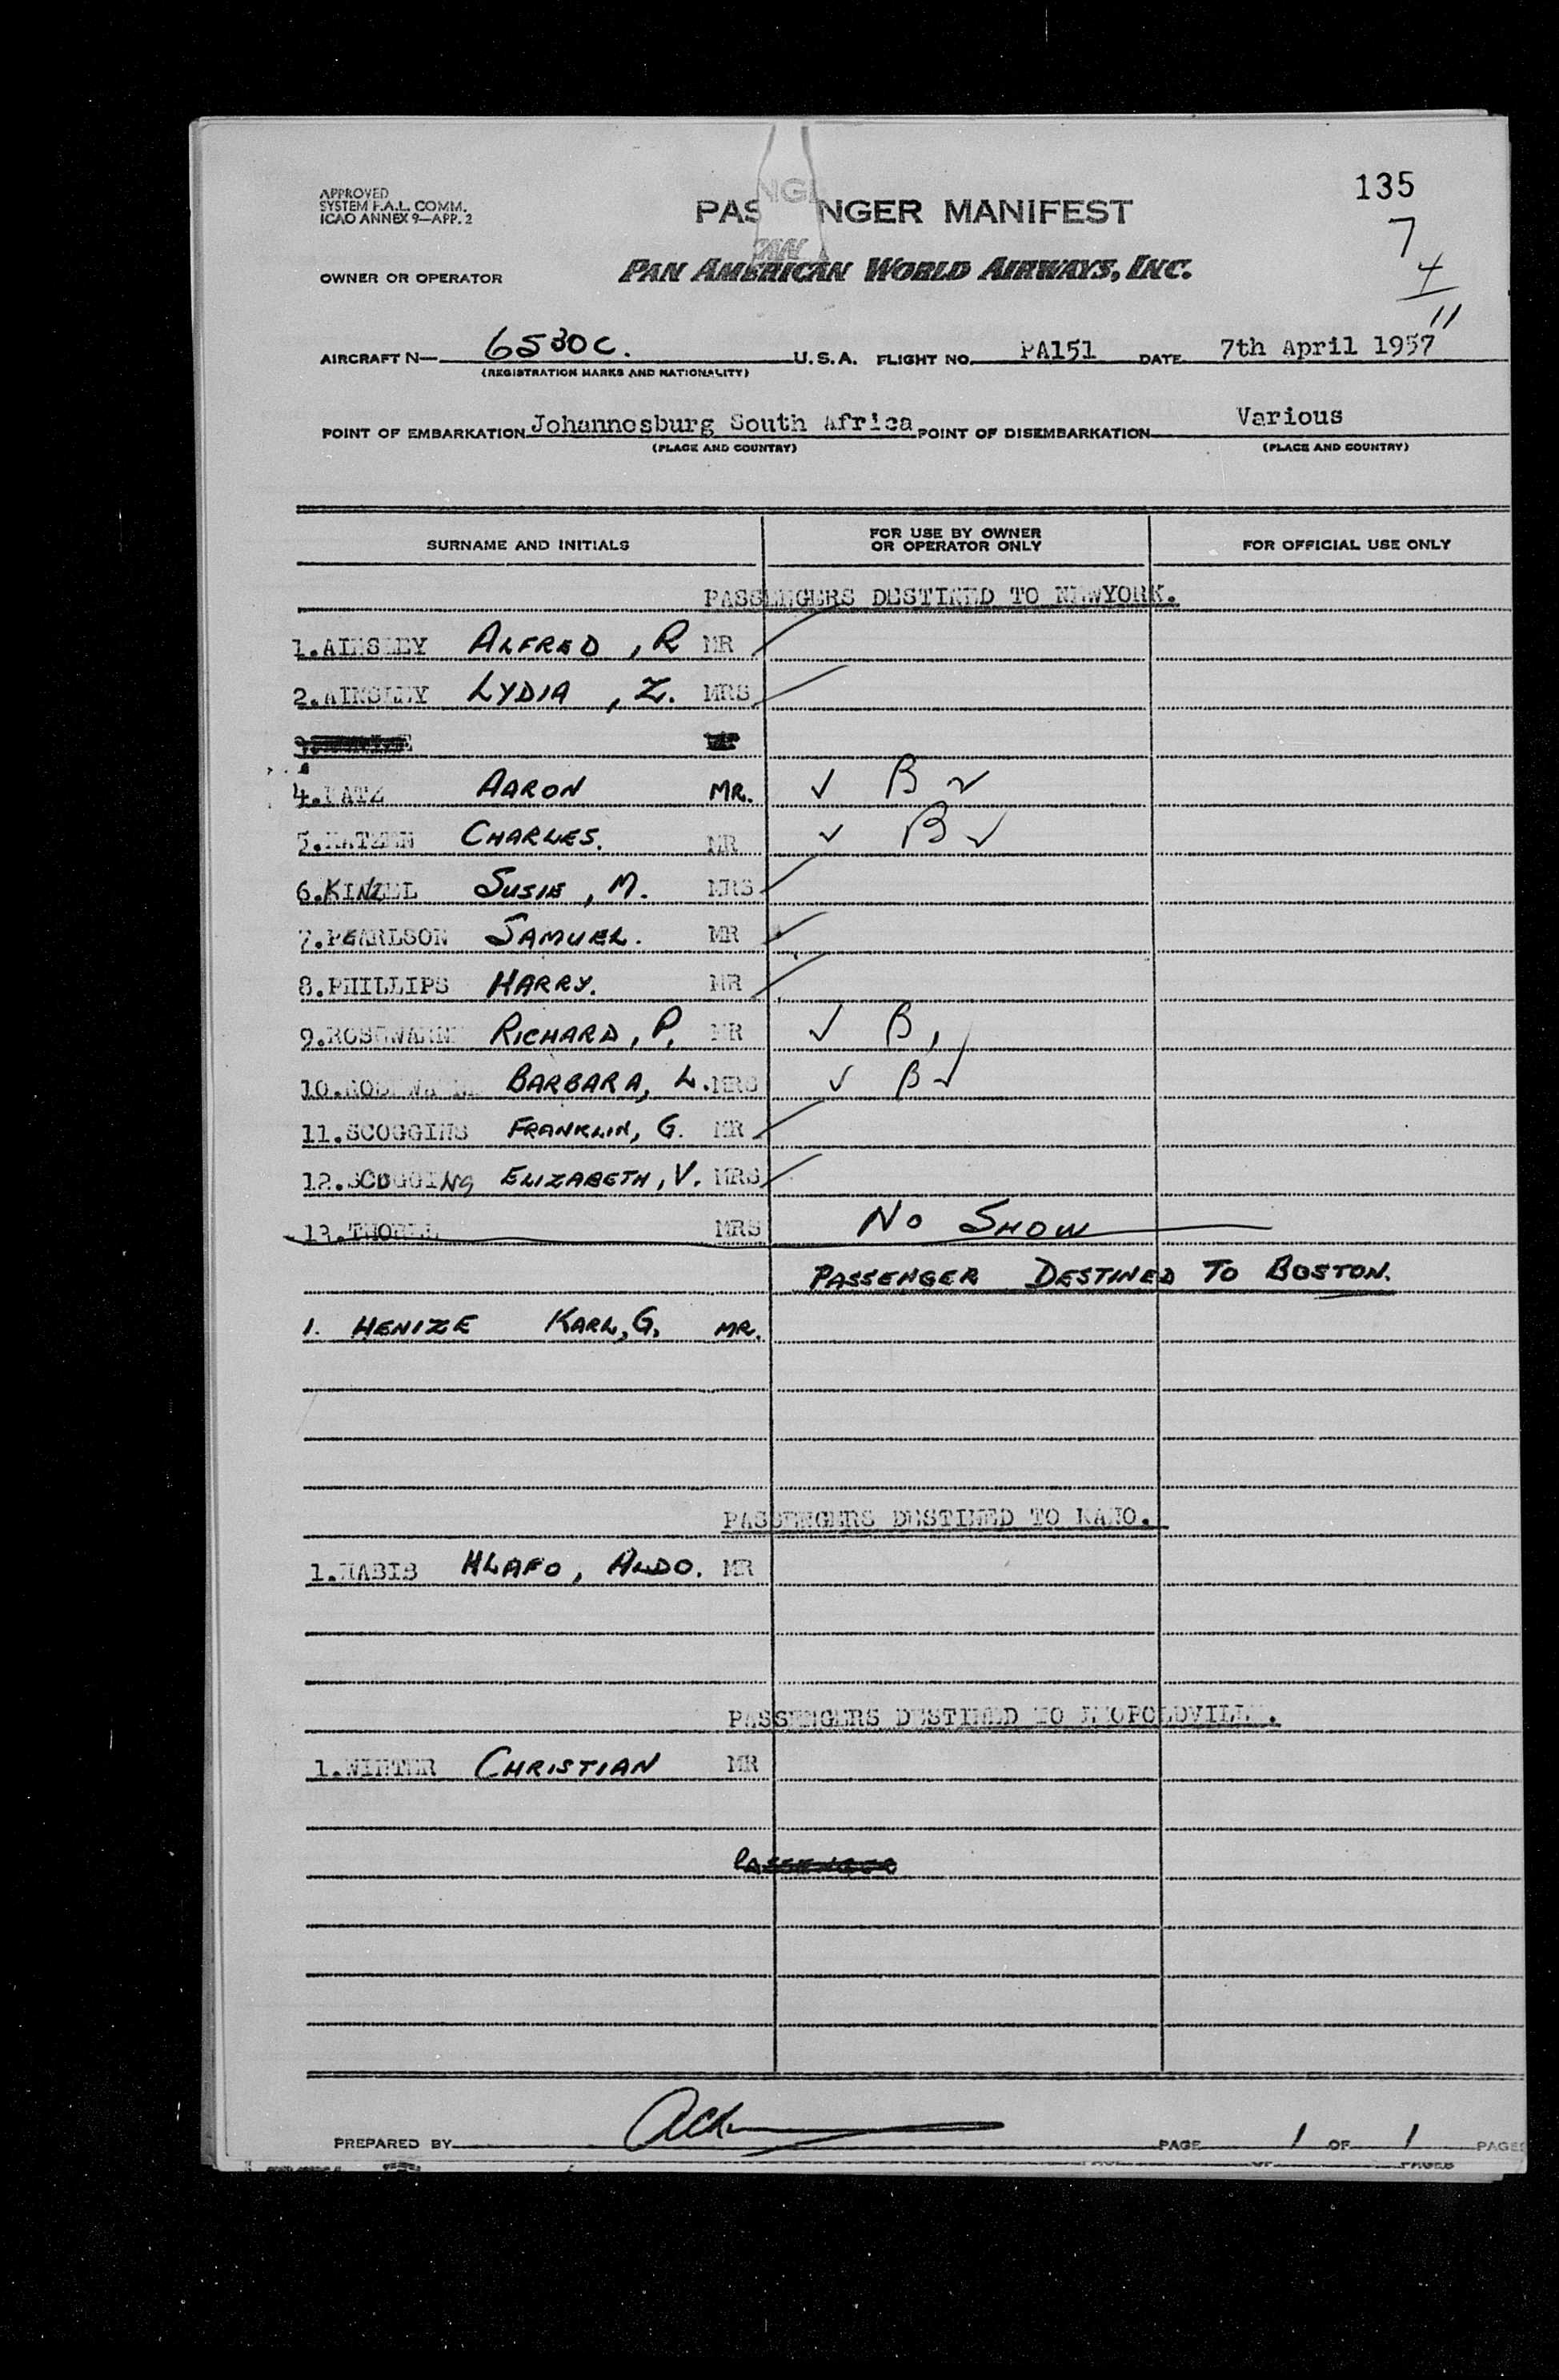 135
APPROVED
SYSTEM F.A.L. COMM.
ICAO ANNEX 9—APP. 2
PASSENGER MANIFEST
7
4
11
OWNER OR OPERATOR PAN AMERICAN WORLD AIRWAYS, INC.
AIRCRAFT N— 6530C. U.S.A. FLIGHT NO. PA151 DATE 7th April 1957
(REGISTRATION MARKS AND NATIONALITY)
POINT OF EMBARKATION Johannesburg South Africa POINT OF DISEMBARKATION Various
(PLACE AND COUNTRY) (PLACE AND COUNTRY)
SURNAME AND INITIALS FOR USE BY OWNER OR OPERATOR ONLY FOR OFFICIAL USE ONLY
PASSENGERS DESTINED TO NEWYORK.
1.AINSLEY ALFRED, R MR
2.AINSLEY LYDIA, Z. MRS
4.KATZ AARON MR. ✓ B ✓
5.KATZEN CHARLES. MR ✓ B ✓
6.KINZEL SUSIE, M. MRS
7.PEARLSON SAMUEL. MR
8.PHILLIPS HARRY. MR
9.ROSEWARNE RICHARD, P. MR ✓ B
10.ROSEWARNE BARBARA, L. MRS ✓ B ✓
11.SCOGGINS FRANKLIN, G. MR
12.SCOGGING ELIZABETH, V. MRS
13. MRS NO SHOW
PASSENGER DESTINED TO BOSTON.
1. HENIZE KARL, G. MR.
PASSENGERS DESTINED TO KANO.
1.HABIB HLAFO, ALDO. MR
PASSENGERS DESTINED TO LEOPOLDVILLE.
1.WINTER CHRISTIAN MR
PASSENGER
PREPARED BY PAGE 1 OF 1 PAGES